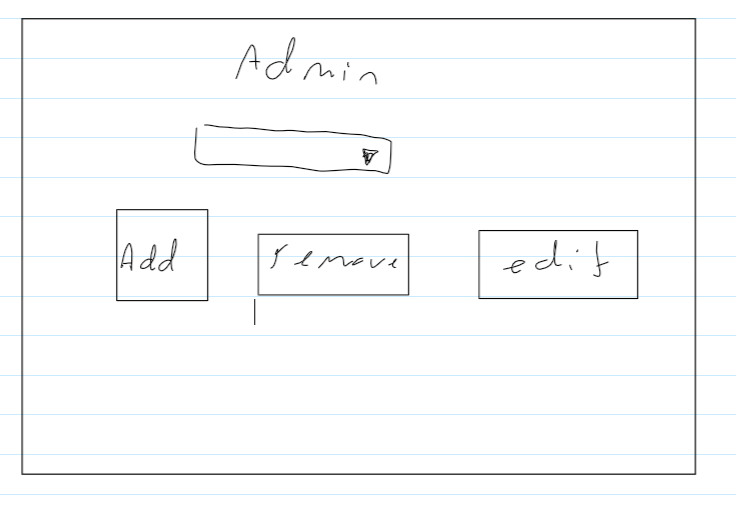 Admin
Add remove edit